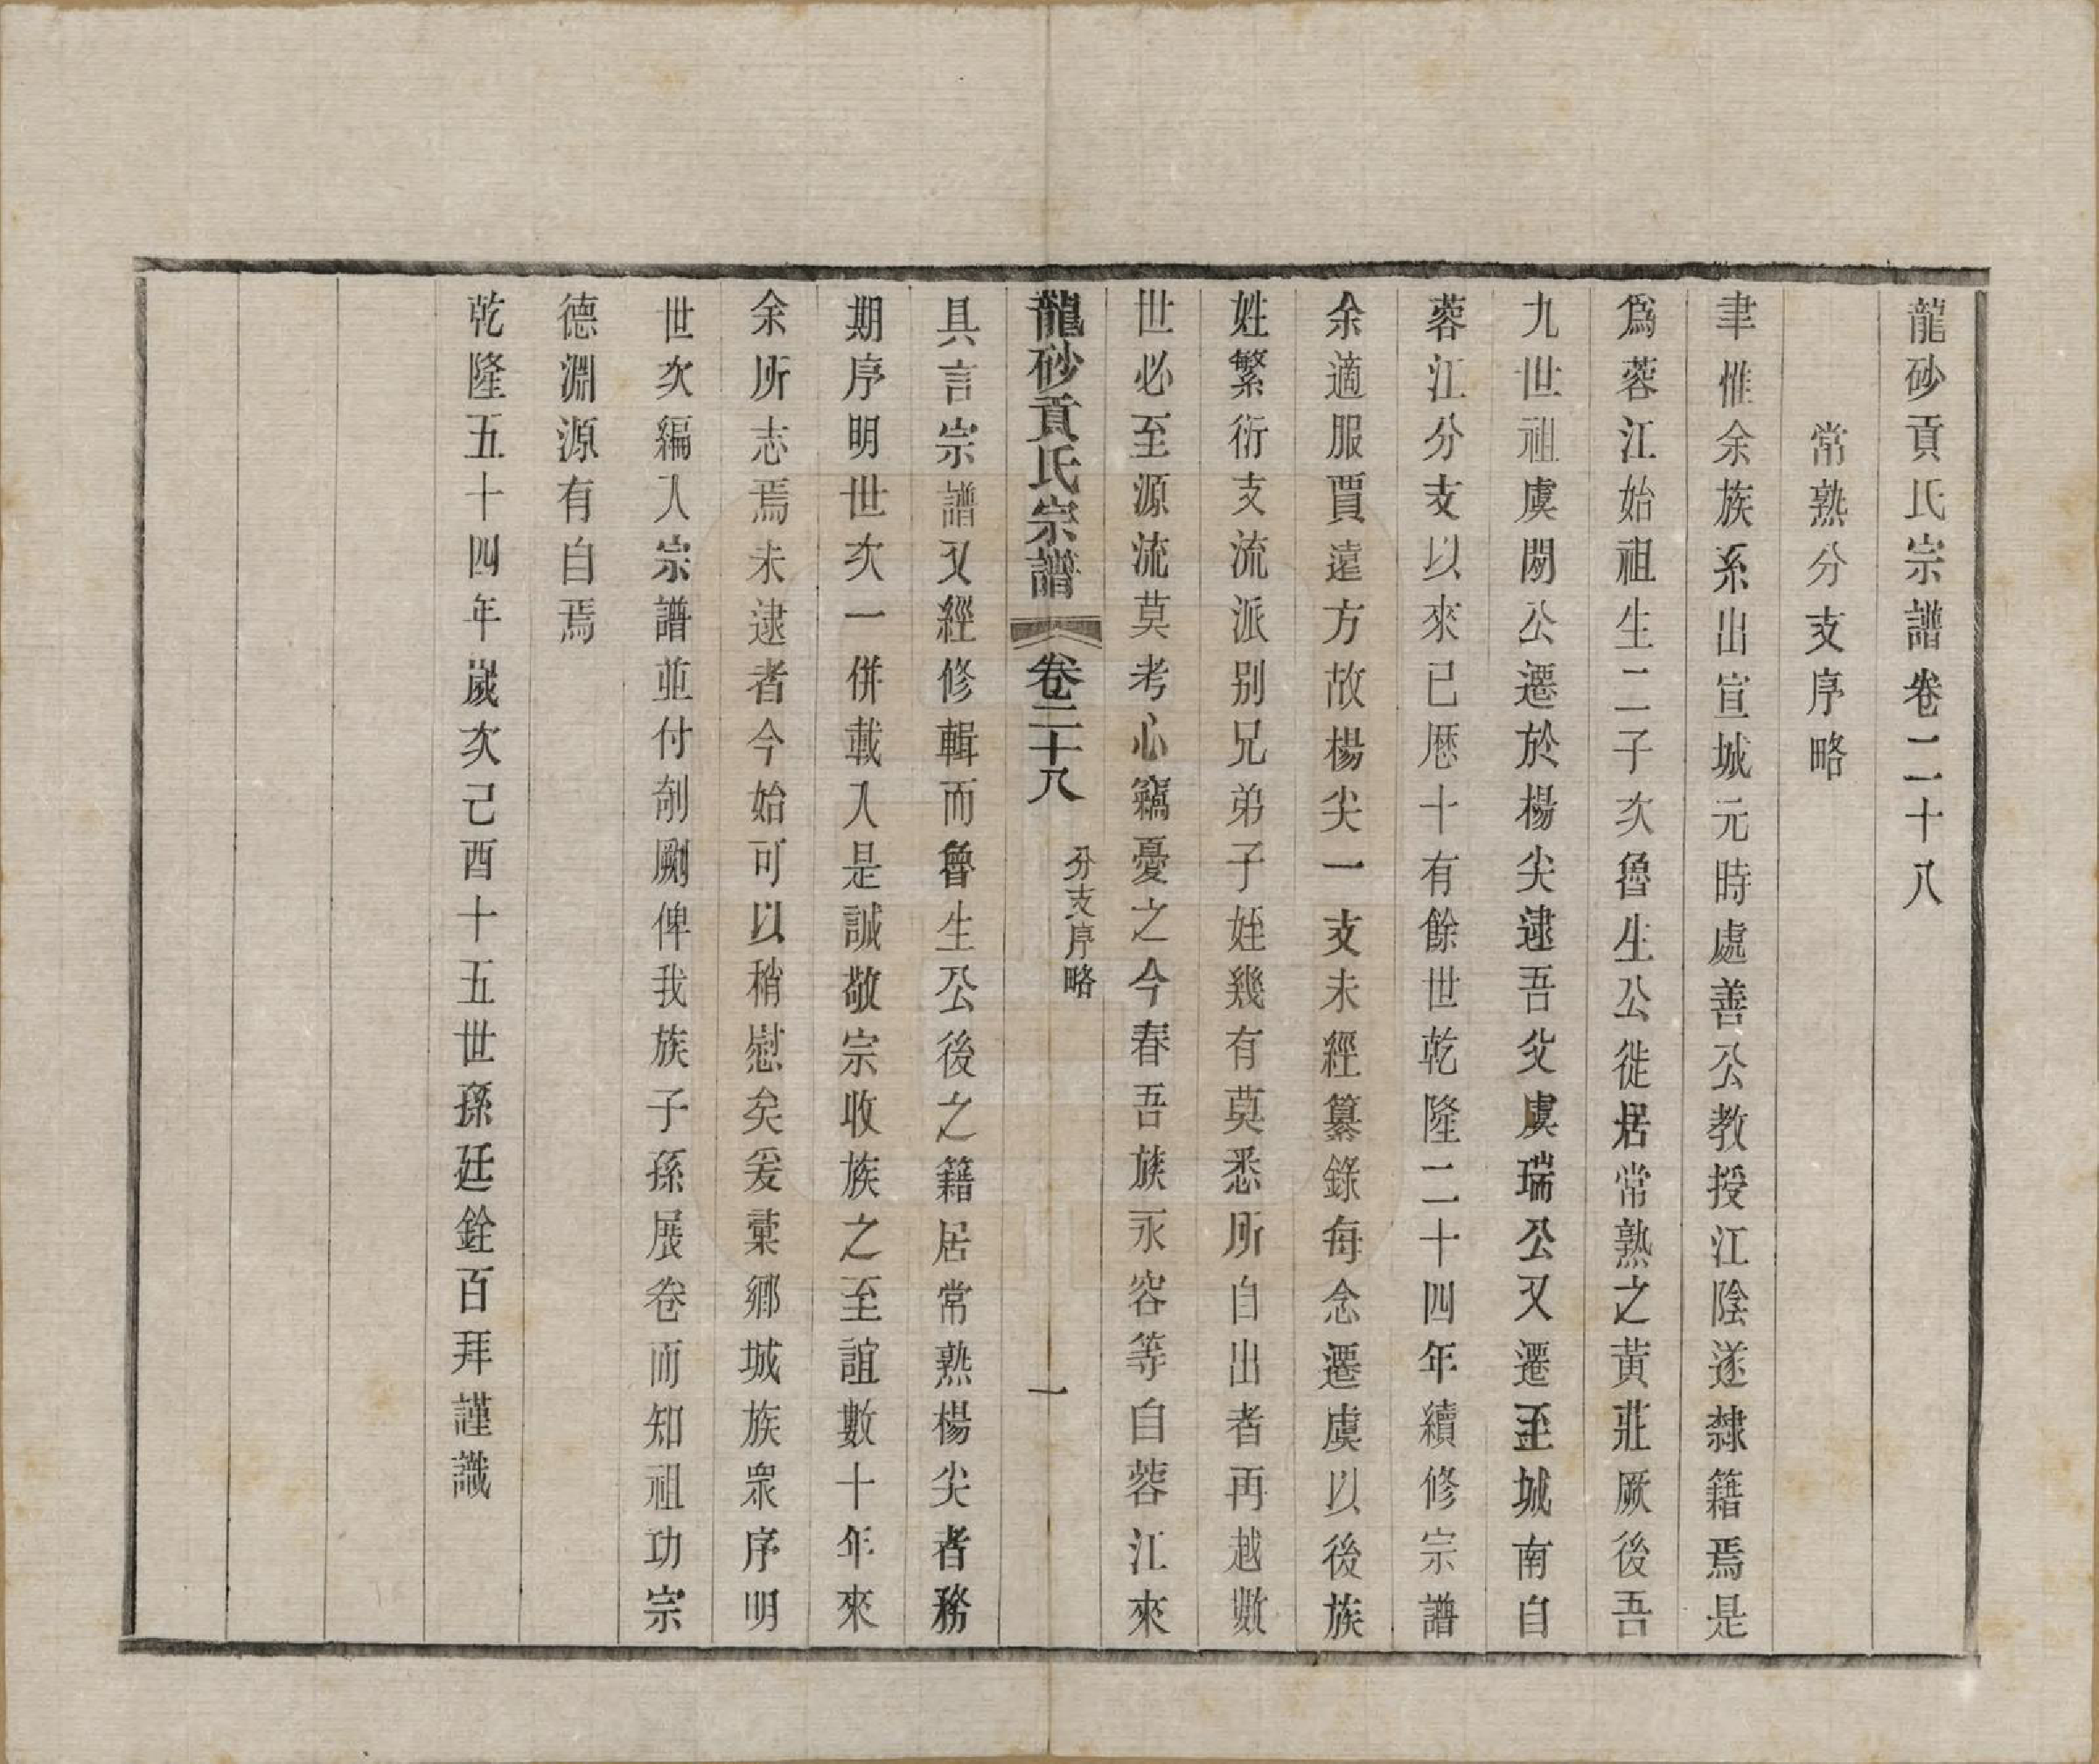 龍砂貢氏宗譜卷二十八
常熟分支序略
聿惟余族系出宣城元時處善公教授江陰遂隸籍焉是
爲蓉江始祖生二子次魯生公徙居常熟之黃莊厥後吾
九世祖虞閎公遷於楊尖逮吾父虞瑞公又遷至城南自
蓉江分支以來已厯十有餘世乾隆二十四年續修宗譜
余適服賈遠方故楊尖一支未經纂錄每念遷虞以後族
姓繁衍支流派别兄弟子姪幾有莫悉所自出者再越數
世必至源流莫考心竊憂之今春吾族永容等自蓉江來
龍砂貢氏宗譜 卷二十八 分支序略 一
具言宗譜又經修輯而魯生公後之籍居常熟楊尖者務
期序明世次一併載入是誠敬宗收族之至誼數十年來
余所志焉未逮者今始可以稍慰矣爰稾鄉城族眾序明
世次編入宗譜並付剞劂俾我族子孫展卷而知祖功宗
德淵源有自焉
乾隆五十四年嵗次己酉十五世孫廷銓百拜謹識